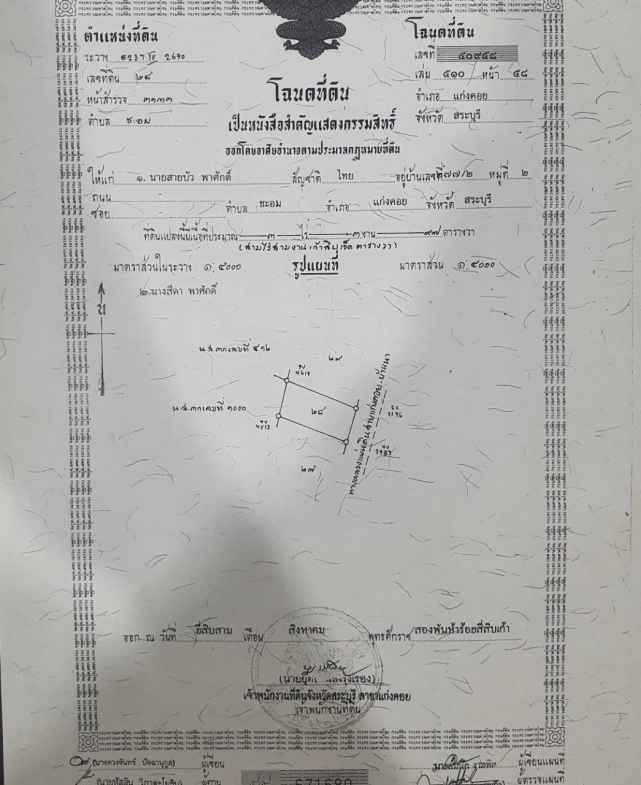 ตำแหน่งที่ดิน
โฉนดที่ดิน
ระวาง ๕๒๓๗ IV 2690
เลขที่ ๕๐๙๕๘
เลขที่ดิน ๒๘
เล่ม ๕๑๐ หน้า ๕๘
หน้าสำรวจ ๓๑๓๓
อำเภอ แก่งคอย
ตำบล ชะอม
จังหวัด สระบุรี
โฉนดที่ดิน
เป็นหนังสือสำคัญแสดงกรรมสิทธิ์
ออกโดยอาศัยอำนาจตามประมวลกฎหมายที่ดิน
ให้แก่ ๑. นายสายบัว พาศักดิ์ สัญชาติ ไทย อยู่บ้านเลขที่ ๗๗/๒ หมู่ที่ ๒
ถนน -
ซอย - ตำบล ชะอม อำเภอ แก่งคอย จังหวัด สระบุรี
ที่ดินแปลงนี้มีเนื้อที่ประมาณ ๓ ไร่ ๓ งาน ๙๗ ตารางวา
(สามไร่สามงานเก้าสิบเจ็ดตารางวา)
มาตราส่วนในระวาง ๑:๔๐๐๐ รูปแผนที่ มาตราส่วน ๑:๔๐๐๐
๒.นางสีดา พาศักดิ์
น
น.ส.๓ก.เลขที่ ๔๑๒
๒๙
น.ส.๓ก.เลขที่ ๑๐๐๐
๒๘
๒๗
ออก ณ วันที่ ยี่สิบสาม เดือน สิงหาคม พุทธศักราช สองพันห้าร้อยสี่สิบเก้า
เจ้าพนักงานที่ดินจังหวัดสระบุรี สาขาแก่งคอย
เจ้าพนักงานที่ดิน
ผู้เขียน
ผู้เขียนแผนที่
ผู้ทาน
671690
ผู้ตรวจแผนที่